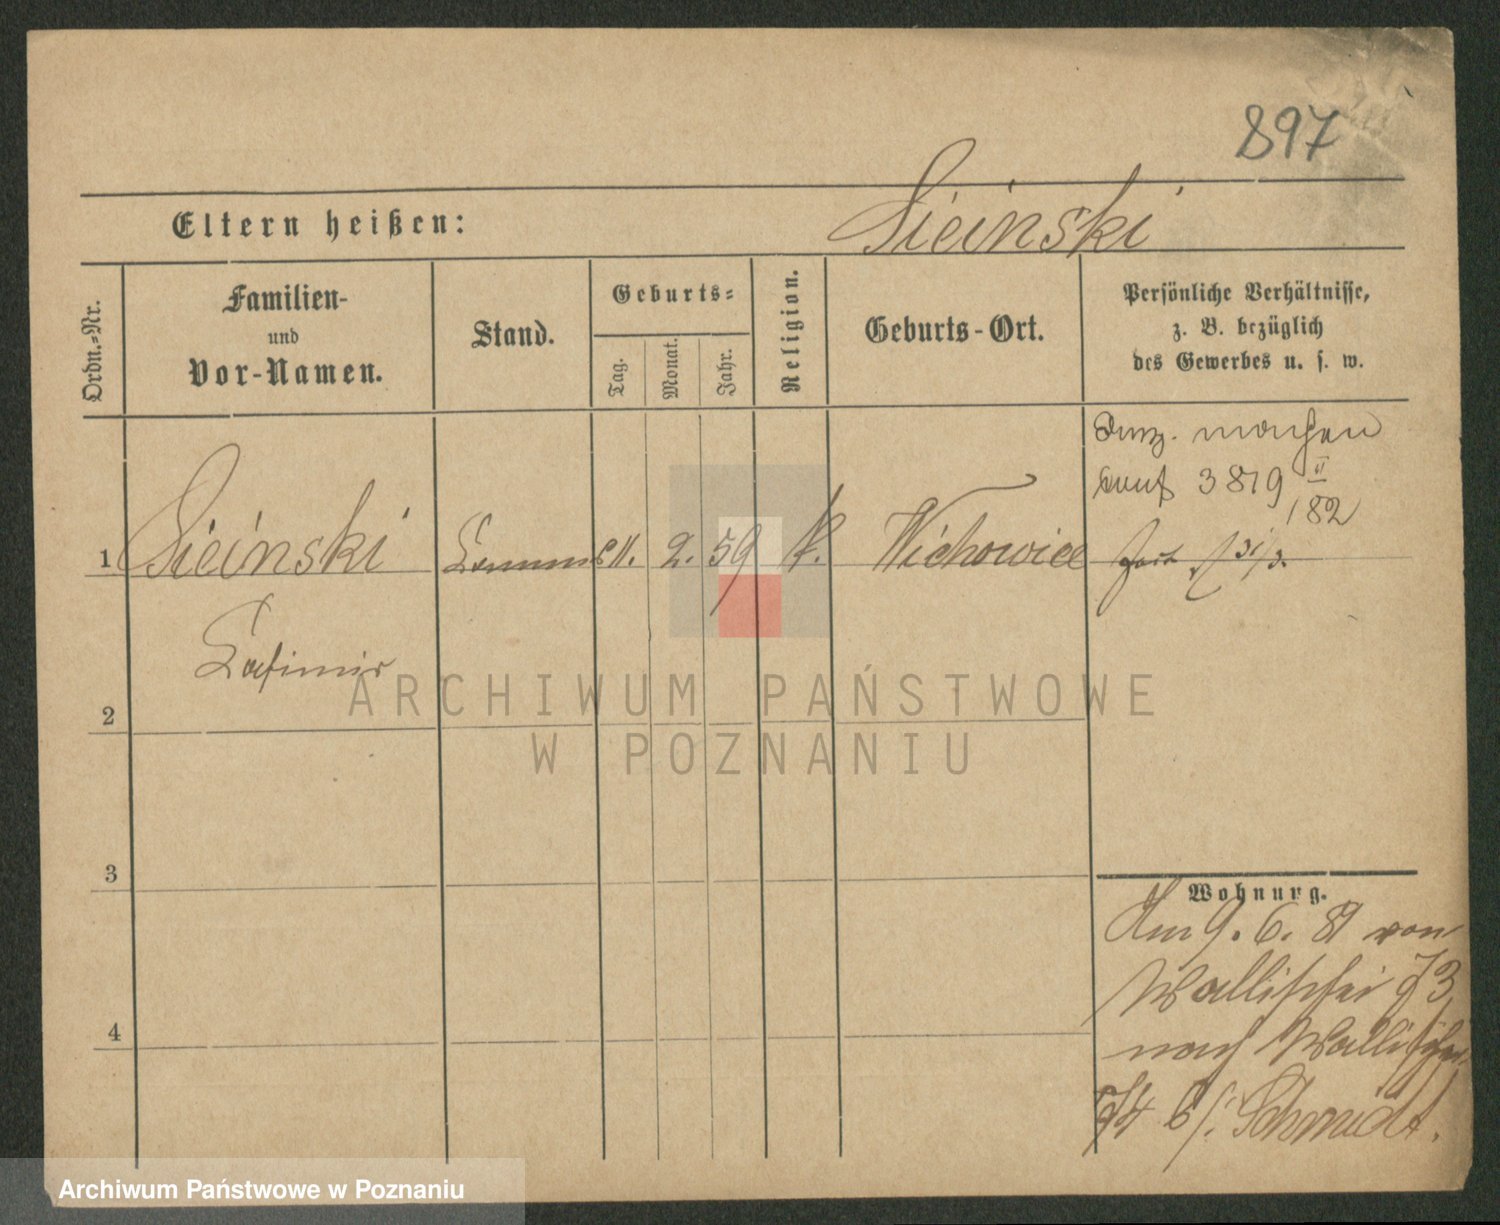 897
Eltern heißen: Sieiński
Ordn.-Nr.
Familien-
und
Vor-Namen.
Stand.
Geburts-
Tag.
Monat.
Jahr.
Religion.
Geburts-Ort.
Persönliche Verhältnisse,
z. B. bezüglich
des Gewerbes u. s. w.
1 Sieiński 2. 59 k. Wichowice
Casimir
2
3
4
3819 II
/82
31/3.
Wohnung.
Am 9. 6. 81 von
Wallischei 73
nach Wallischei
74 b/. Schmidt.
ARCHIWUM PAŃSTWOWE
W POZNANIU
Archiwum Państwowe w Poznaniu